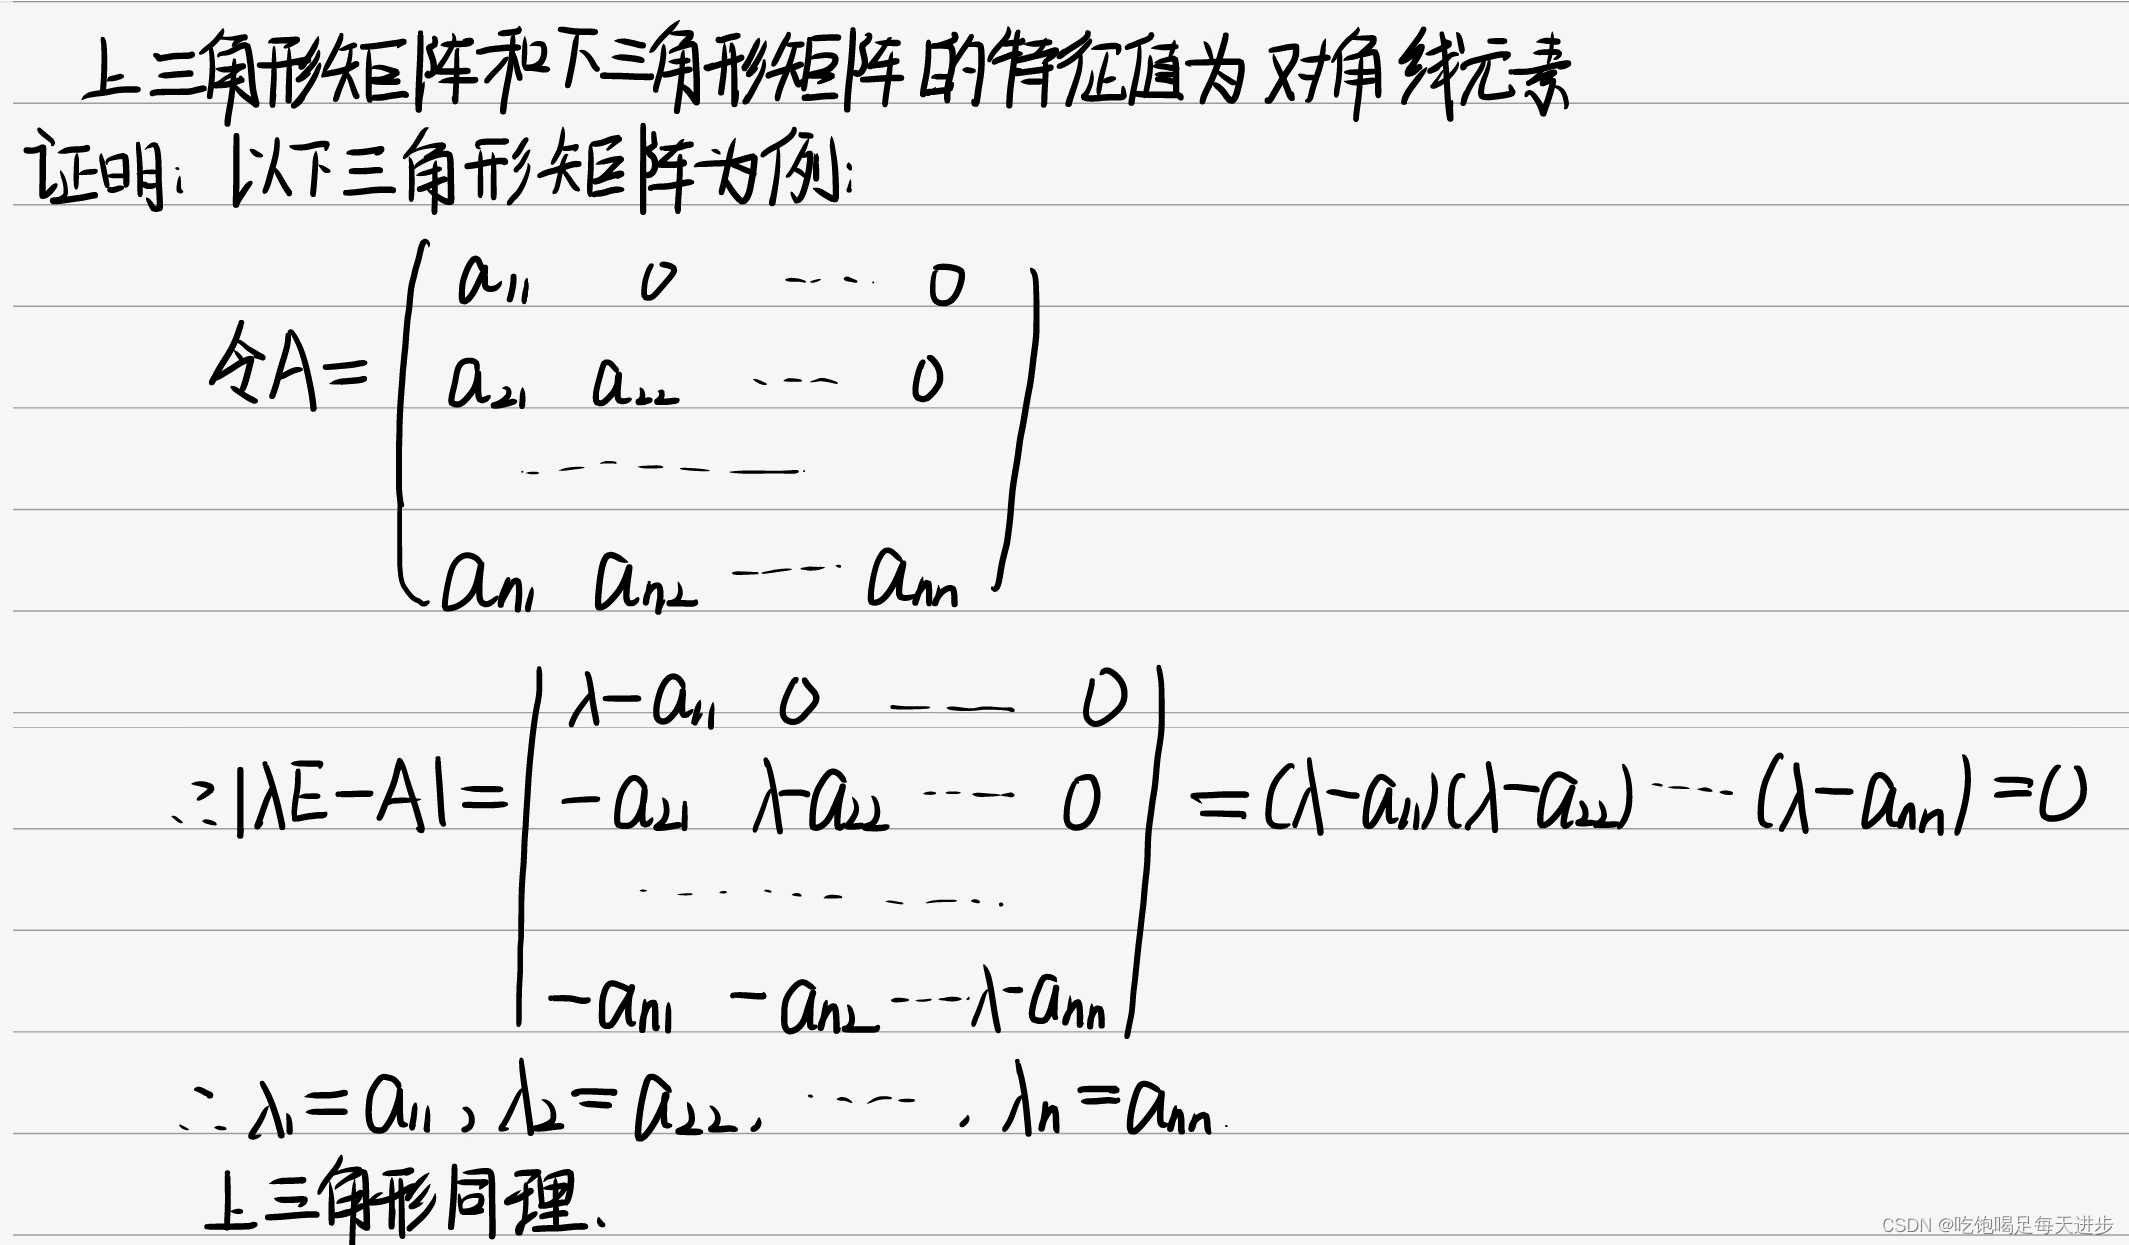 上三角形矩阵和下三角形矩阵的特征值为对角线元素
证明: 以下三角形矩阵为例:
a₁₁ 0 ---- 0
令A= a₂₁ a₂₂ ---- 0
------
aₙ₁ aₙ₂ ---- aₙₙ
λ-a₁₁ 0 ---- 0
∴|λE-A|= -a₂₁ λ-a₂₂ ---- 0 =(λ-a₁₁)(λ-a₂₂)----(λ-aₙₙ)=0
----------
-aₙ₁ -aₙ₂ ---- λ-aₙₙ
∴λ₁=a₁₁, λ₂=a₂₂, ----, λₙ=aₙₙ.
上三角形同理.
CSDN @吃饱喝足每天进步